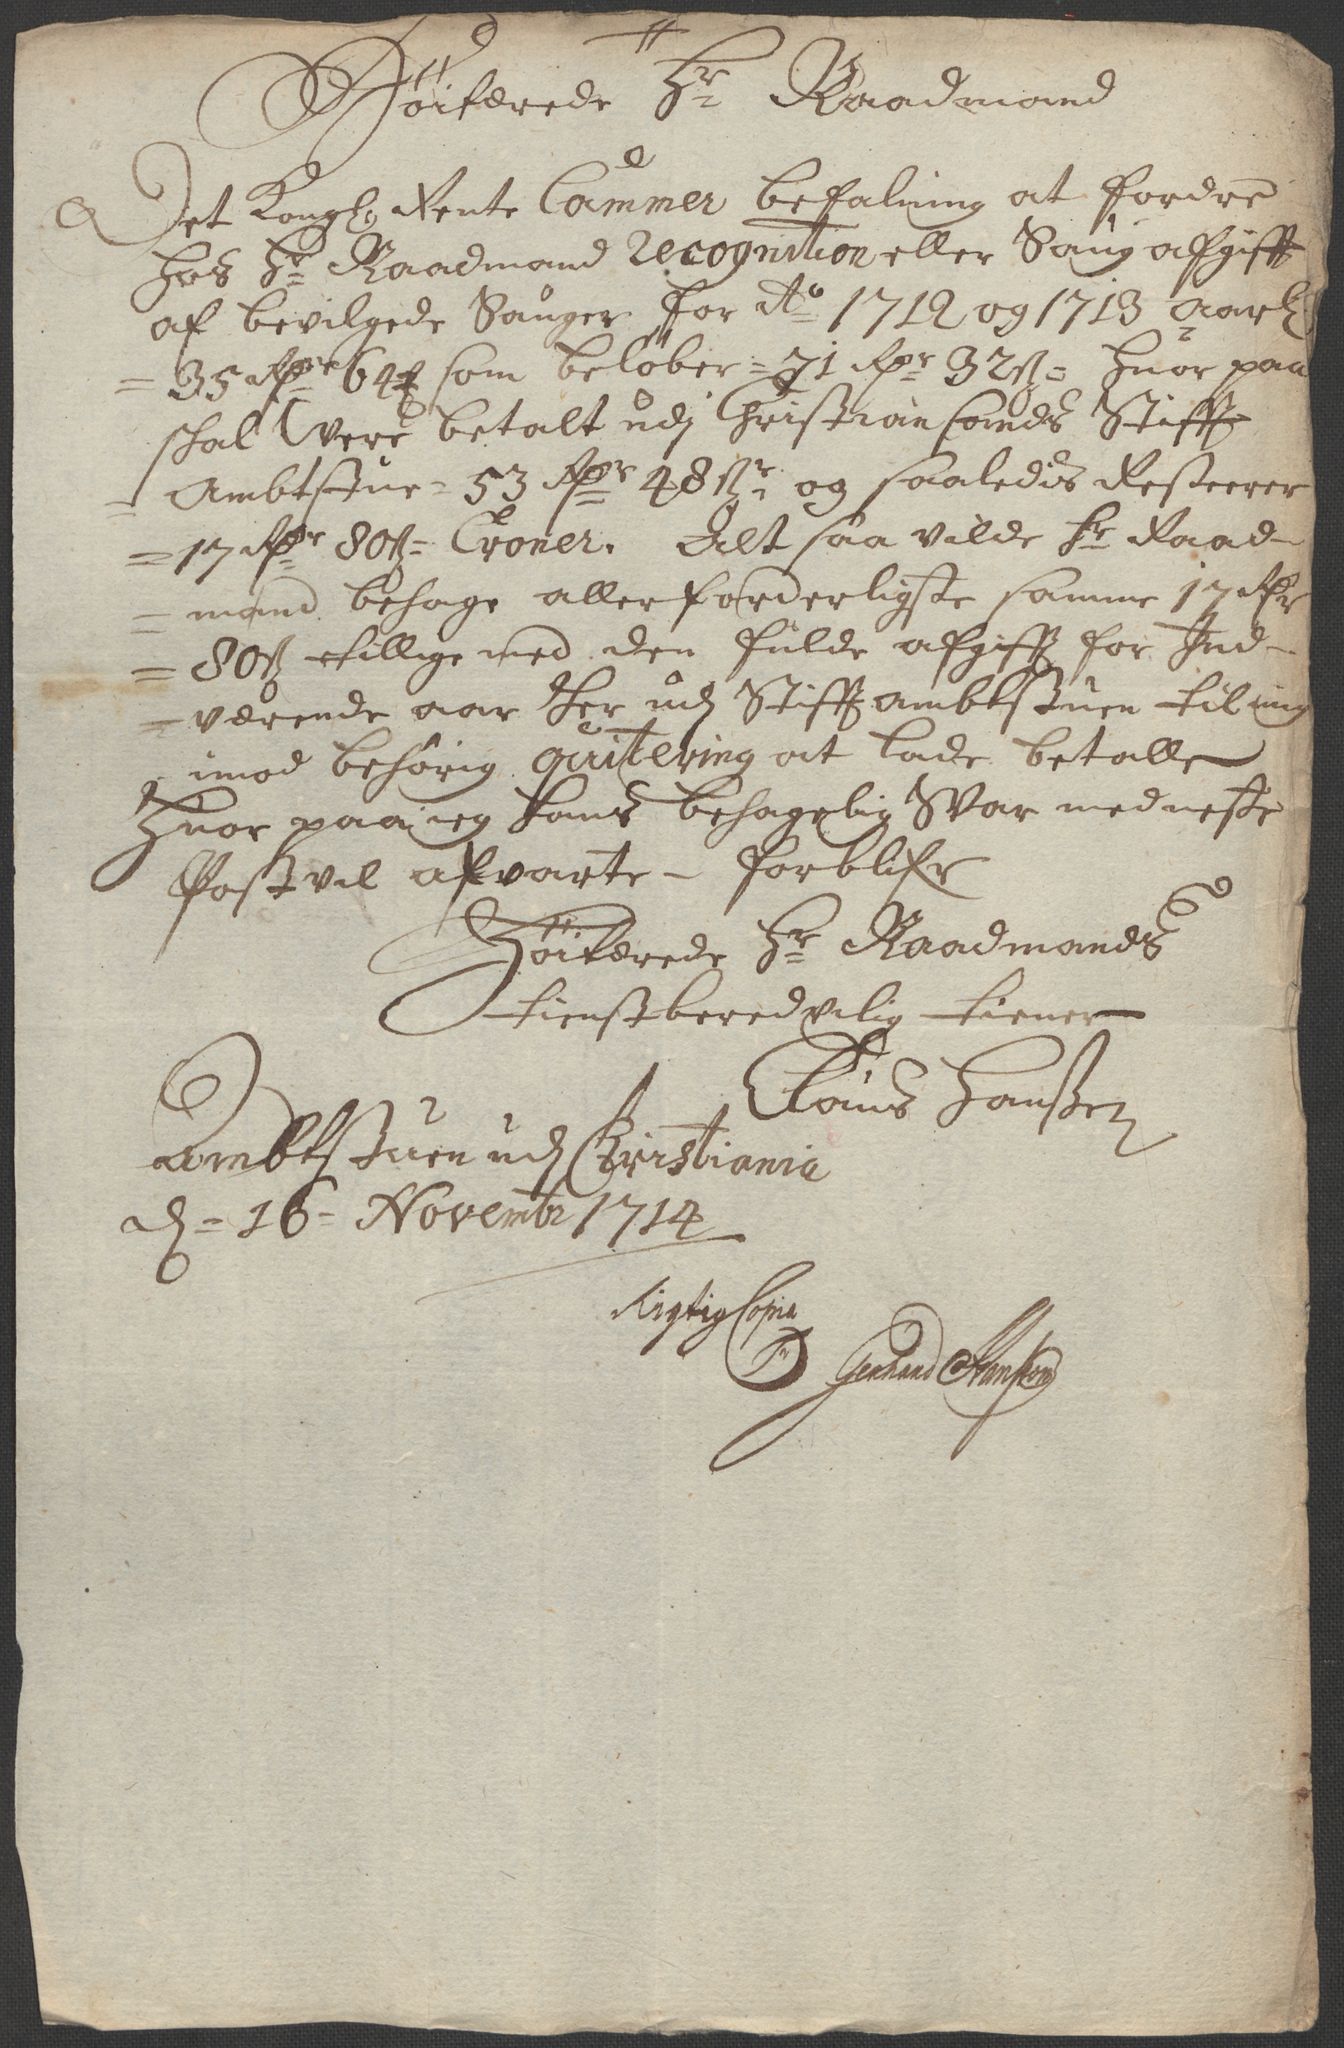 Høiærede Hr Raadmand
Det Kongl. Rente Cammer befalning at fordre
hos Hr Raadmand recognition eller Saug afgifft
af bevilgede Sauger for Ao 1712 og 1713 aarl
= 35 Rdr 64 ß som beløber = 71 Rdr 32 ß = Huor paa
skal Were betalt udj Christiansands Stifft
= Ambtstue = 53 Rdr 48 ß r og saaledis Resterer
= 17 Rdr 80 ß = Croner. Alt saa vilde Hr Raad-
= mand behage allerforderligste samme 17 Rdr
= 80 ß tillige med den fulde afgifft for Ind-
= værende aar her udj Stifft ambtstuen til mig
imod behørig quitering at lade betalle
Huor paa ieg hans behagelig Svar med neste
Post vil afvarte - forblifr
Høiærede Hr Raadmands
tienstberedvilig tiener
Claus Hanßen
Ambtstuen udj Christiania
d = 16 = Novembr 1714
Rigtig Copia
Gerhard